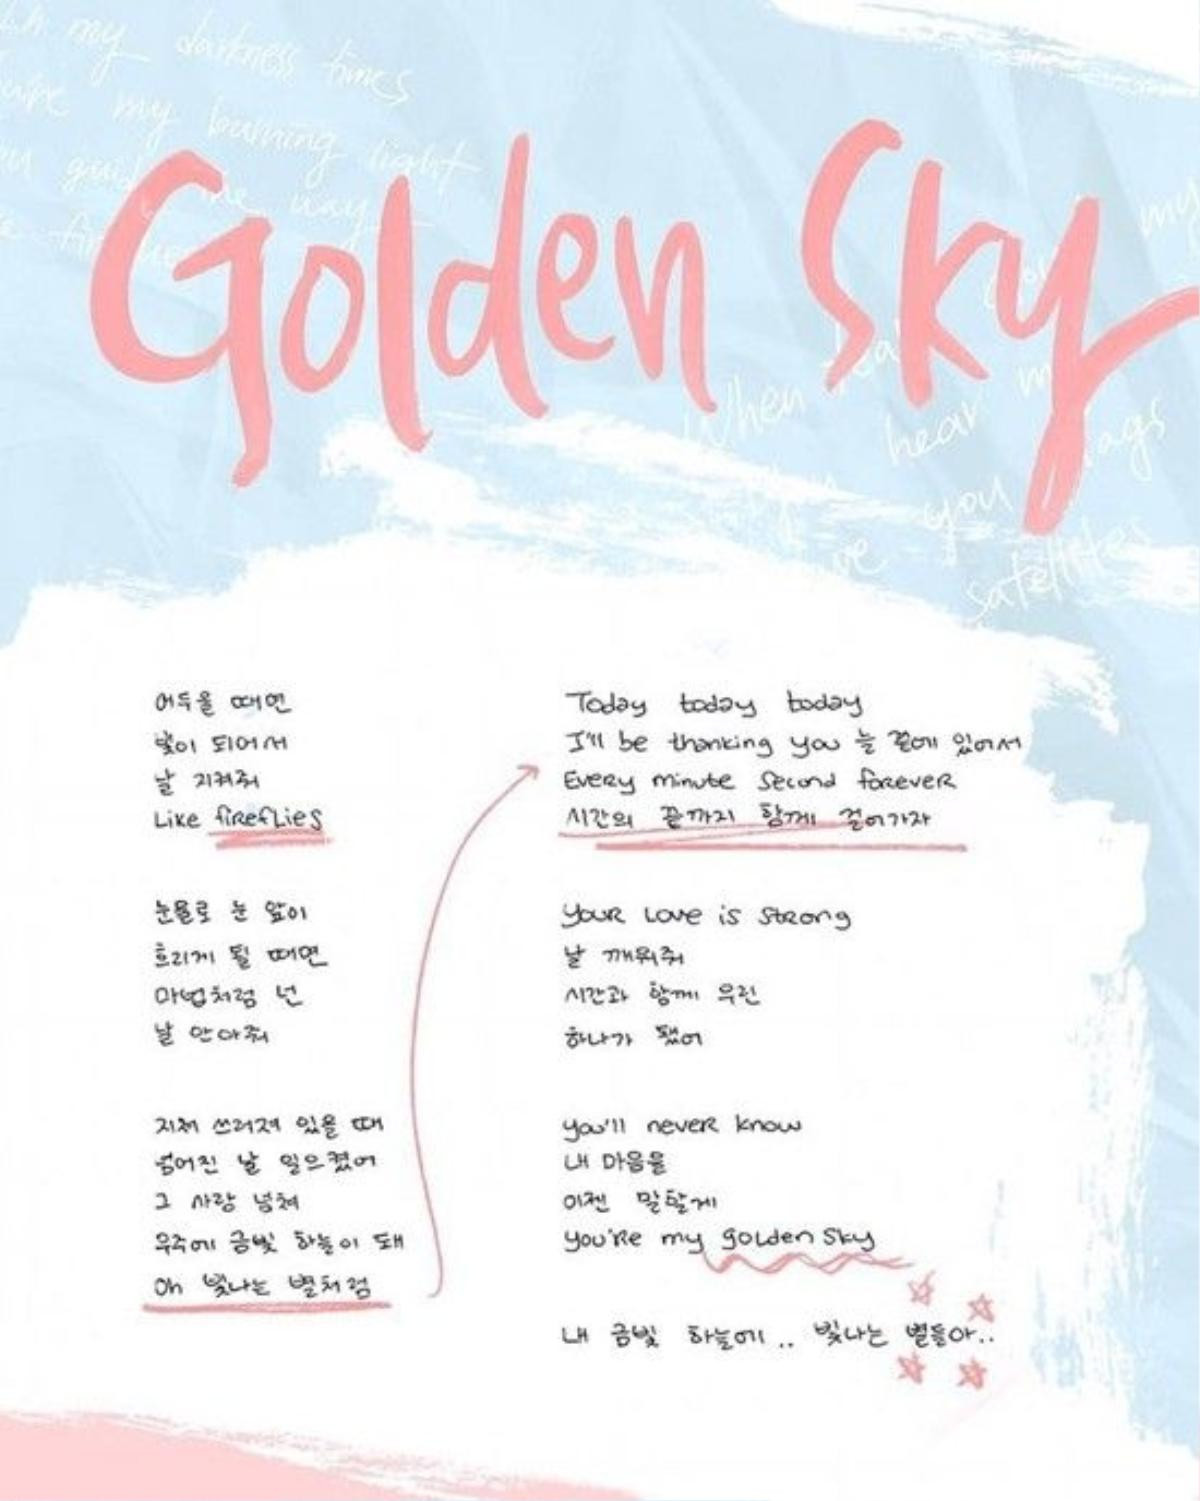 my darkness times
my burning light
me way
Golden Sky
my
When
hear
you
satellites
어두울 때면
빛이 되어서
날 지켜줘
Like fireflies
눈물로 눈 앞이
흐리게 될 때면
마법처럼 넌
날 안아줘
지쳐 쓰러져 있을 때
넘어진 날 일으켰어
그 사랑 넘쳐
우주에 금빛 하늘이 돼
Oh 빛나는 별처럼
Today today today
I'll be thanking you 늘 곁에 있어서
Every minute second forever
시간의 끝까지 함께 걸어가자
Your love is strong
날 깨워줘
시간과 함께 우린
하나가 됐어
You'll never know
내 마음을
이젠 말할게
You're my golden sky
내 금빛 하늘에.. 빛나는 별들아..